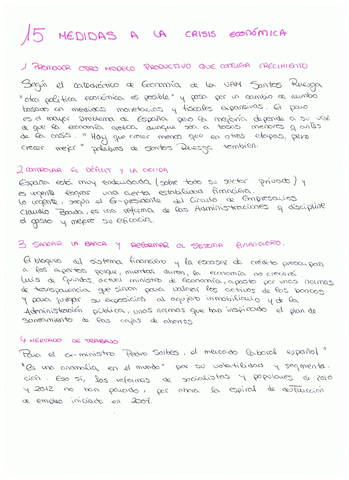 15 MEDIDAS A LA CRISIS ECONÓMICA
1 PROMOVER OTRO MODELO PRODUCTIVO QUE CONSIGA CRECIMIENTO
Según el catedrático de Economía de la UAM Santos Ruesga,
"otra política económica es posible" y pasa por un cambio de rumbo
basado en medidas monetarias y fiscales expansivas. El paro
es el mayor problema de España pero la mejoría depende a su vez
de que la economía crezca, aunque sea a tasas menores q antes
de la crisis. "Hay que crecer menos que en otras etapas, pero
crecer mejor" palabras de Santos Ruesga también.
2 CONTROLAR EL DÉFICIT Y LA DEUDA
España está muy endeudada (sobre todo su sector privado) y
es urgente lograr una cierta estabilidad financiera.
lo urgente, según el ex-presidente del Círculo de Empresarios
Claudio Boada, es una reforma de las Administraciones q discipline
el gasto y mejore su eficacia.
3 SANEAR LA BANCA Y REFORMAR EL SISTEMA FINANCIERO.
El bloqueo del sistema financiero y la escasez de crédito preocupan
a los expertos porque, mientras duren, la economía no crecerá
Luis de Guindos, actual ministro de economía, apostó por unas normas
de transparencia que sirvan para valorar los activos de los bancos
y para juzgar su exposición al agujero inmobiliario y de la
Administración pública, unas normas que han inspirado el plan de
saneamiento de las cajas de ahorros
4 MERCADO DE TRABAJO
Para el ex-ministro Pedro Solbes, el mercado laboral español "
"es una anomalía en el mundo" por su volatilidad y segmenta-
ción. Eso sí, las reformas de socialistas y populares de 2010
y 2012 no han parado, por ahora la espiral de destrucción
de empleo iniciada en 2007.